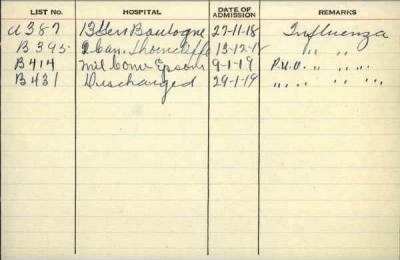 LIST No. HOSPITAL DATE OF ADMISSION REMARKS
A387 13 Gen Boulogne 27-11-18 Influenza
B395 2 Can. Thorncliffe 13-12-18 " "
B414 Mil Conv Epsom 9-1-19 P.U.O. " " " "
B431 Discharged 29-1-19 " " " " "